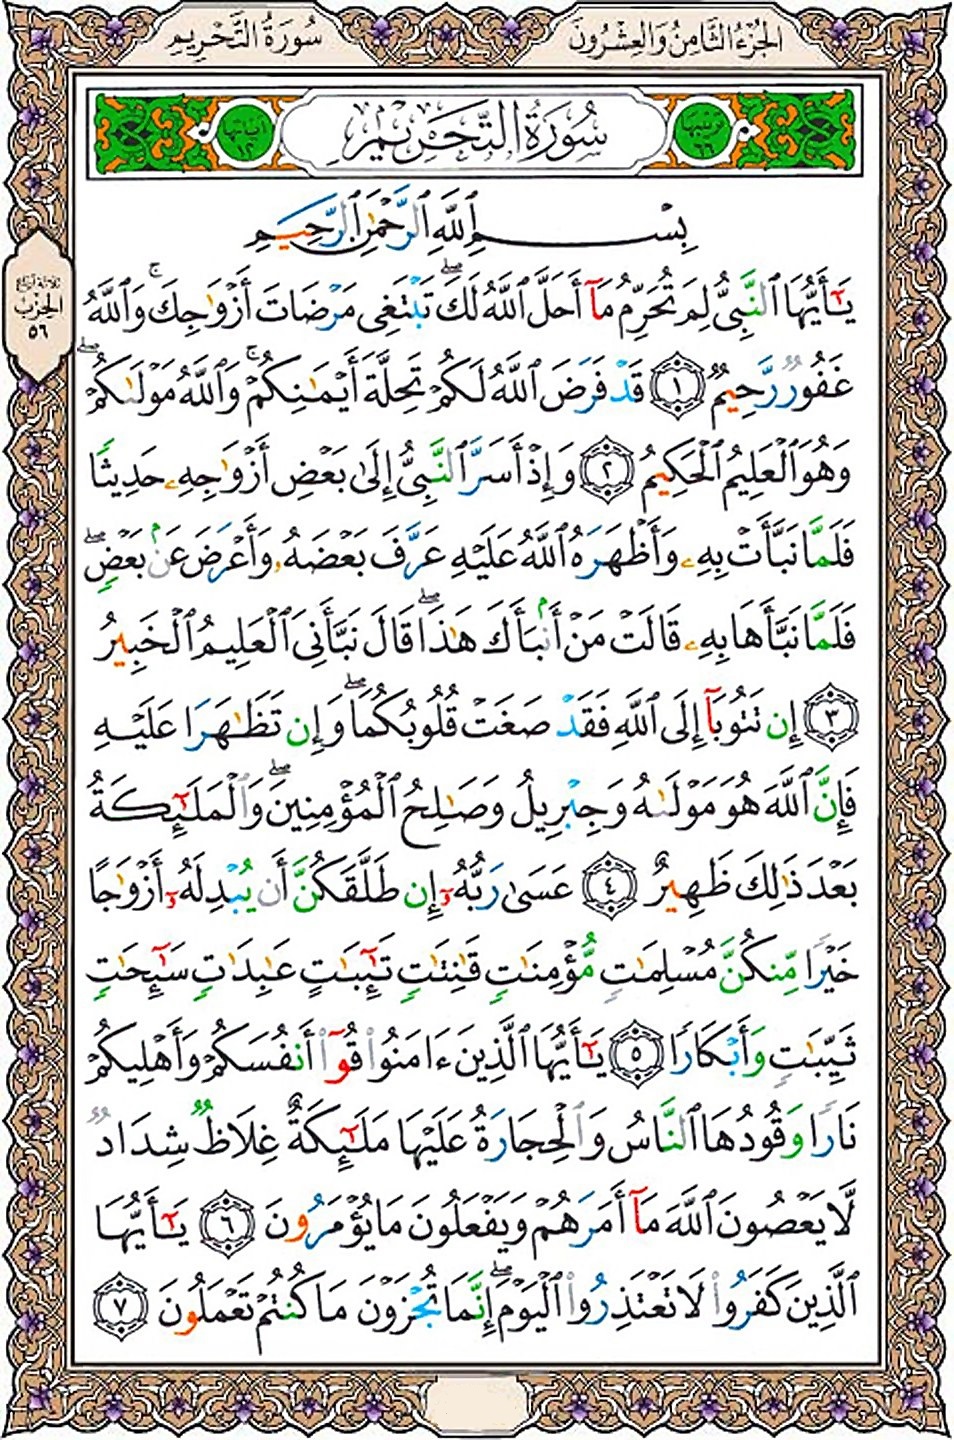 الجزء الثامن والعشرون
سورة التحريم
ترتيبها ٦٦
سُورَةُ التَّحْرِيمِ
آياتها ١٢
بِسْمِ ٱللَّهِ ٱلرَّحْمَٰنِ ٱلرَّحِيمِ
يَٰٓأَيُّهَا ٱلنَّبِىُّ لِمَ تُحَرِّمُ مَآ أَحَلَّ ٱللَّهُ لَكَ ۖ تَبْتَغِى مَرْضَاتَ أَزْوَٰجِكَ ۚ وَٱللَّهُ
غَفُورٌ رَّحِيمٌ ١ قَدْ فَرَضَ ٱللَّهُ لَكُمْ تَحِلَّةَ أَيْمَٰنِكُمْ ۚ وَٱللَّهُ مَوْلَىٰكُمْ ۖ
وَهُوَ ٱلْعَلِيمُ ٱلْحَكِيمُ ٢ وَإِذْ أَسَرَّ ٱلنَّبِىُّ إِلَىٰ بَعْضِ أَزْوَٰجِهِۦ حَدِيثًا
فَلَمَّا نَبَّأَتْ بِهِۦ وَأَظْهَرَهُ ٱللَّهُ عَلَيْهِ عَرَّفَ بَعْضَهُۥ وَأَعْرَضَ عَنۢ بَعْضٍ ۖ
فَلَمَّا نَبَّأَهَا بِهِۦ قَالَتْ مَنْ أَنۢبَأَكَ هَٰذَا ۖ قَالَ نَبَّأَنِىَ ٱلْعَلِيمُ ٱلْخَبِيرُ
٣ إِن تَتُوبَآ إِلَى ٱللَّهِ فَقَدْ صَغَتْ قُلُوبُكُمَا ۖ وَإِن تَظَٰهَرَا عَلَيْهِ
فَإِنَّ ٱللَّهَ هُوَ مَوْلَىٰهُ وَجِبْرِيلُ وَصَٰلِحُ ٱلْمُؤْمِنِينَ ۖ وَٱلْمَلَٰٓئِكَةُ
بَعْدَ ذَٰلِكَ ظَهِيرٌ ٤ عَسَىٰ رَبُّهُۥٓ إِن طَلَّقَكُنَّ أَن يُبْدِلَهُۥٓ أَزْوَٰجًا
خَيْرًا مِّنكُنَّ مُسْلِمَٰتٍ مُّؤْمِنَٰتٍ قَٰنِتَٰتٍ تَٰٓئِبَٰتٍ عَٰبِدَٰتٍ سَٰٓئِحَٰتٍ
ثَيِّبَٰتٍ وَأَبْكَارًا ٥ يَٰٓأَيُّهَا ٱلَّذِينَ ءَامَنُوا۟ قُوٓا۟ أَنفُسَكُمْ وَأَهْلِيكُمْ
نَارًا وَقُودُهَا ٱلنَّاسُ وَٱلْحِجَارَةُ عَلَيْهَا مَلَٰٓئِكَةٌ غِلَاظٌ شِدَادٌ
لَّا يَعْصُونَ ٱللَّهَ مَآ أَمَرَهُمْ وَيَفْعَلُونَ مَا يُؤْمَرُونَ ٦ يَٰٓأَيُّهَا
ٱلَّذِينَ كَفَرُوا۟ لَا تَعْتَذِرُوا۟ ٱلْيَوْمَ ۖ إِنَّمَا تُجْزَوْنَ مَا كُنتُمْ تَعْمَلُونَ ٧
ثلاثة أرباع
الحزب
٥٦